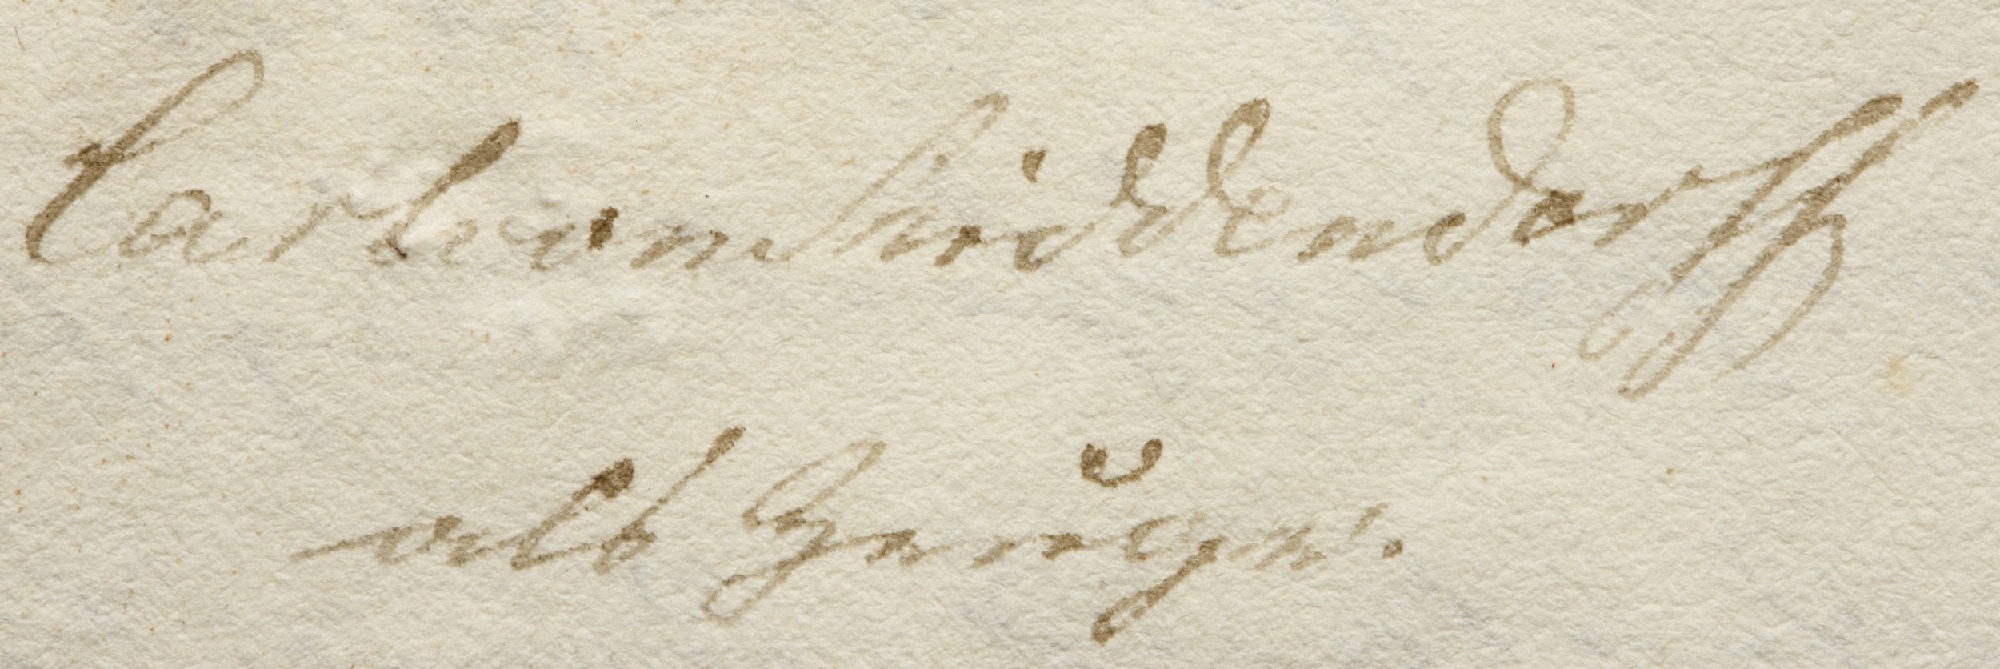 Carl von Middendorff
als Zeuge.